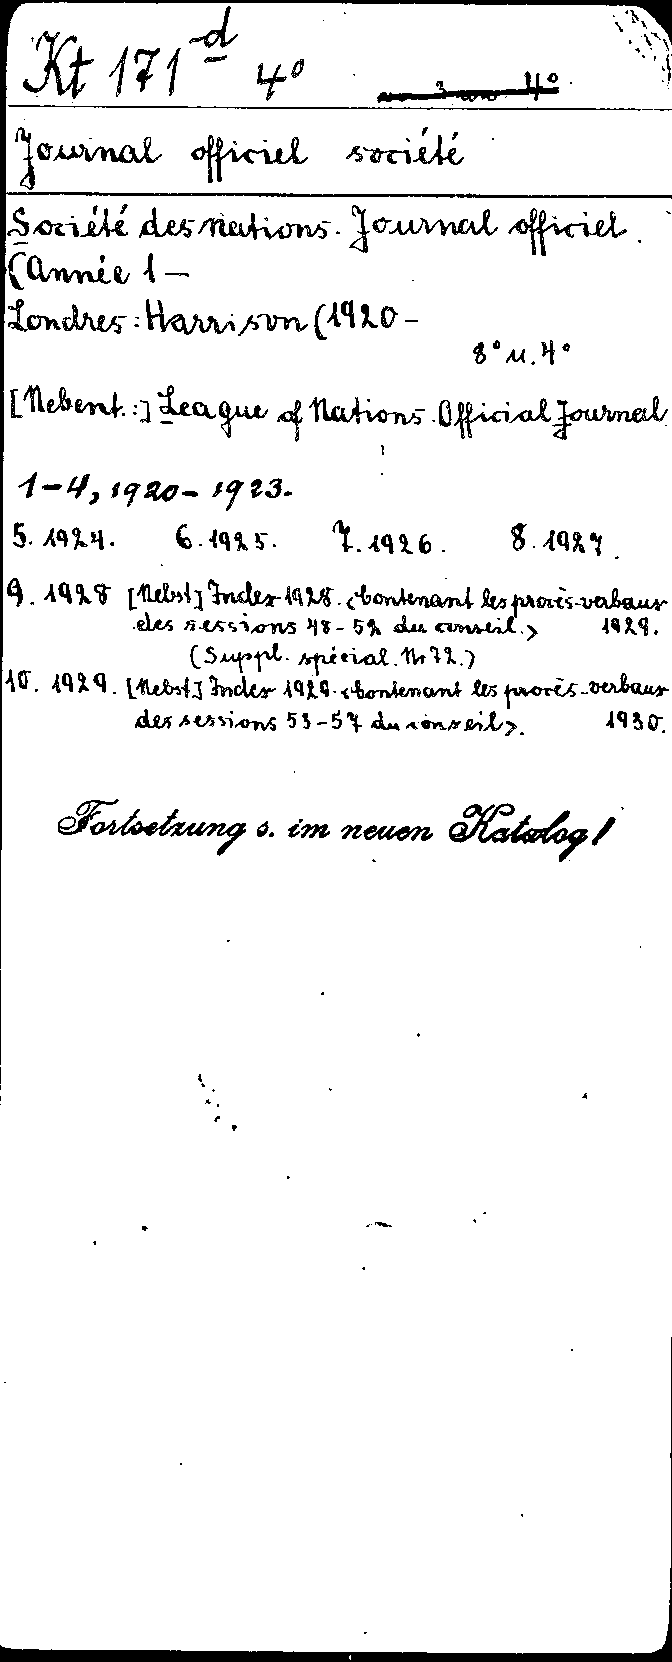 Kt 171 d 4° 4°
Journal officiel société
Société des Nations. Journal officiel.
(Année 1 –
Londres: Harrison (1920 –
8° u. 4°
[Nebent.:] League of Nations. Official Journal
1–4, 1920–1923.
5. 1924. 6. 1925. 7. 1926. 8. 1927.
9. 1928 [Nebst] Index 1928. <Contenant les procès-verbaux
des sessions 48–52 du conseil.> 1929.
(Suppl. spécial. Nr 72.)
10. 1929. [Nebst] Index 1929. <Contenant les procès-verbaux
des sessions 53–57 du conseil>. 1930.
Fortsetzung s. im neuen Katalog!